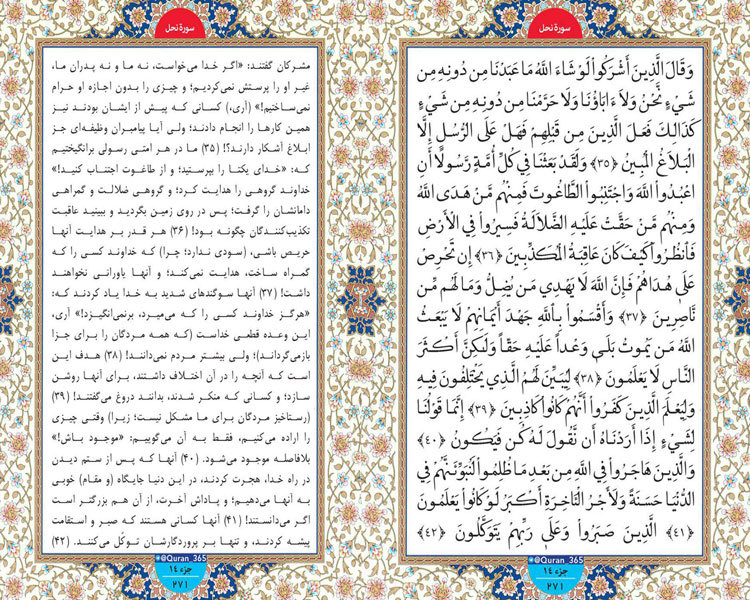 سورهٔ نحل
وَقَالَ الَّذِينَ أَشْرَكُواْ لَوْ شَاءَ اللَّهُ مَا عَبَدْنَا مِن دُونِهِ مِن
شَيْءٍ نَّحْنُ وَلَا ءَابَاؤُنَا وَلَا حَرَّمْنَا مِن دُونِهِ مِن شَيْءٍ
كَذَالِكَ فَعَلَ الَّذِينَ مِن قَبْلِهِمْ فَهَلْ عَلَى الرُّسُلِ إِلَّا
الْبَلَاغُ الْمُبِينُ ﴿٣٥﴾ وَلَقَدْ بَعَثْنَا فِي كُلِّ أُمَّةٍ رَّسُولًا أَنِ
اعْبُدُواْ اللَّهَ وَاجْتَنِبُواْ الطَّاغُوتَ فَمِنْهُم مَّنْ هَدَى اللَّهُ
وَمِنْهُم مَّنْ حَقَّتْ عَلَيْهِ الضَّلَالَةُ فَسِيرُواْ فِي الْأَرْضِ
فَانظُرُواْ كَيْفَ كَانَ عَاقِبَةُ الْمُكَذِّبِينَ ﴿٣٦﴾ إِن تَحْرِصْ
عَلَى هُدَاهُمْ فَإِنَّ اللَّهَ لَا يَهْدِي مَن يُضِلُّ وَمَا لَهُم مِّن
نَّاصِرِينَ ﴿٣٧﴾ وَأَقْسَمُواْ بِاللَّهِ جَهْدَ أَيْمَانِهِمْ لَا يَبْعَثُ
اللَّهُ مَن يَمُوتُ بَلَى وَعْدًا عَلَيْهِ حَقًّا وَلَكِنَّ أَكْثَرَ
النَّاسِ لَا يَعْلَمُونَ ﴿٣٨﴾ لِيُبَيِّنَ لَهُمُ الَّذِي يَخْتَلِفُونَ فِيهِ
وَلِيَعْلَمَ الَّذِينَ كَفَرُواْ أَنَّهُمْ كَانُواْ كَاذِبِينَ ﴿٣٩﴾ إِنَّمَا قَوْلُنَا
لِشَيْءٍ إِذَا أَرَدْنَاهُ أَن نَّقُولَ لَهُ كُن فَيَكُونُ ﴿٤٠﴾
وَالَّذِينَ هَاجَرُواْ فِي اللَّهِ مِن بَعْدِ مَا ظُلِمُواْ لَنُبَوِّئَنَّهُمْ فِي
الدُّنْيَا حَسَنَةً وَلَأَجْرُ الْآخِرَةِ أَكْبَرُ لَوْ كَانُواْ يَعْلَمُونَ
﴿٤١﴾ الَّذِينَ صَبَرُواْ وَعَلَى رَبِّهِمْ يَتَوَكَّلُونَ ﴿٤٢﴾
@Quran_365
جزء ١٤
٢٧١
سورهٔ نحل
مشرکان گفتند: «اگر خدا می‌خواست، نه ما و نه پدران ما،
غیر او را پرستش نمی‌کردیم؛ و چیزی را بدون اجازه او حرام
نمی‌ساختیم!» (آری،) کسانی که پیش از ایشان بودند نیز
همین کارها را انجام دادند؛ ولی آیا پیامبران وظیفه‌ای جز
ابلاغ آشکار دارند؟! (۳۵) ما در هر امتی رسولی برانگیختیم
که: «خدای یکتا را بپرستید؛ و از طاغوت اجتناب کنید!»
خداوند گروهی را هدایت کرد؛ و گروهی ضلالت و گمراهی
دامانشان را گرفت؛ پس در روی زمین بگردید و ببینید عاقبت
تکذیب‌کنندگان چگونه بود! (۳۶) هر قدر بر هدایت آنها
حریص باشی، (سودی ندارد؛ چرا) که خداوند کسی را که
گمراه ساخت، هدایت نمی‌کند؛ و آنها یاورانی نخواهند
داشت! (۳۷) آنها سوگندهای شدید به خدا یاد کردند که:
«هرگز خداوند کسی را که می‌میرد، برنمی‌انگیزد!» آری،
این وعده قطعی خداست (که همه مردگان را برای جزا
بازمی‌گرداند)؛ ولی بیشتر مردم نمی‌دانند! (۳۸) هدف این
است که آنچه را در آن اختلاف داشتند، برای آنها روشن
سازد؛ و کسانی که منکر شدند، بدانند دروغ می‌گفتند! (۳۹)
(رستاخیز مردگان برای ما مشکل نیست؛ زیرا) وقتی چیزی
را اراده می‌کنیم، فقط به آن می‌گوییم: «موجود باش!»
بلافاصله موجود می‌شود. (۴۰) آنها که پس از ستم دیدن
در راه خدا، هجرت کردند، در این دنیا جایگاه (و مقام) خوبی
به آنها می‌دهیم؛ و پاداش آخرت، از آن هم بزرگتر است
اگر می‌دانستند! (۴۱) آنها کسانی هستند که صبر و استقامت
پیشه کردند، و تنها بر پروردگارشان توکّل می‌کنند. (۴۲)
@Quran_365
جزء ١٤
٢٧١